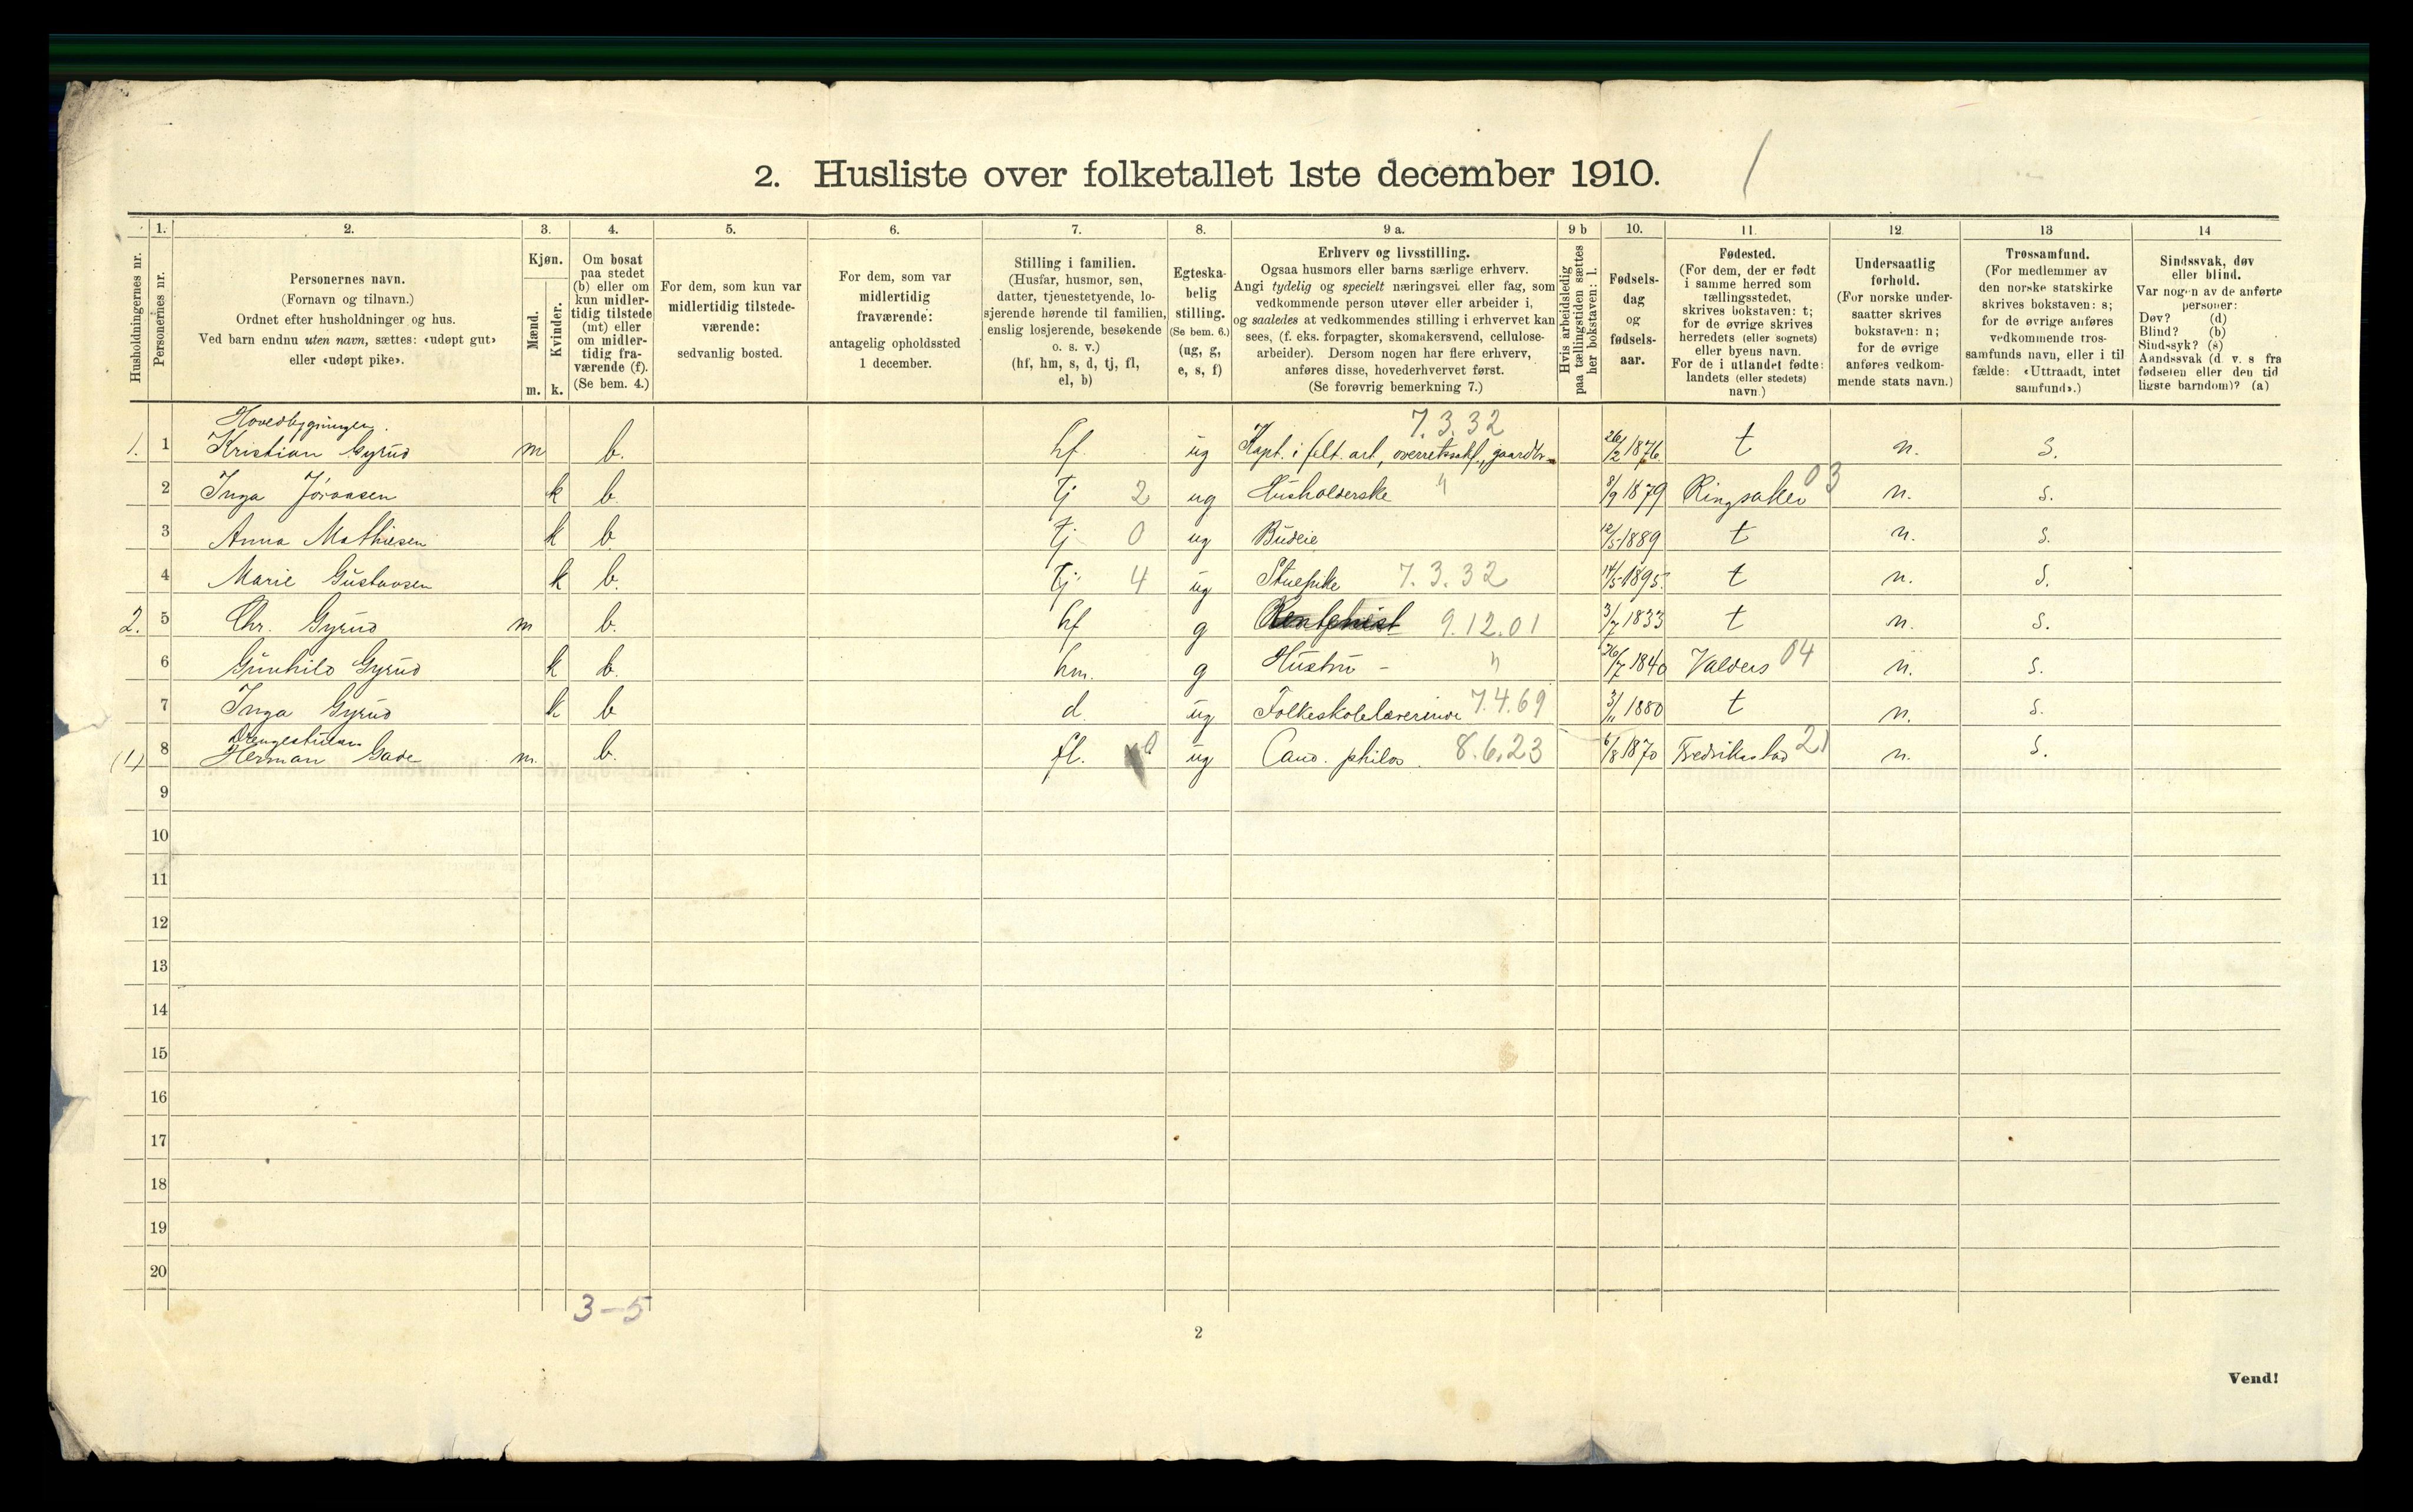 2. Husliste over folketallet 1ste december 1910. /
Husholdningernes nr.
1. Personernes nr.
2. Personernes navn.
(Fornavn og tilnavn.)
Ordnet efter husholdninger og hus.
Ved barn endnu uten navn, sættes: «udøpt gut»
eller «udøpt pike».
3. Kjøn.
Mænd. m.
Kvinder. k.
4. Om bosat
paa stedet
(b) eller om
kun midler-
tidig tilstede
(mt) eller
om midler-
tidig fra-
værende (f).
(Se bem. 4.)
5. For dem, som kun var
midlertidig tilstede-
værende:
sedvanlig bosted.
6. For dem, som var
midlertidig
fraværende:
antagelig opholdssted
1 december.
7. Stilling i familien.
(Husfar, husmor, søn,
datter, tjenestetyende, lo-
sjerende hørende til familien,
enslig losjerende, besøkende
o. s. v.)
(hf, hm, s, d, tj, fl,
el, b)
8. Egteska-
belig
stilling.
(Se bem. 6.)
(ug, g,
e, s, f)
9 a. Erhverv og livsstilling.
Ogsaa husmors eller barns særlige erhverv.
Angi tydelig og specielt næringsvei eller fag, som
vedkommende person utøver eller arbeider i,
og saaledes at vedkommendes stilling i erhvervet kan
sees, (f. eks. forpagter, skomakersvend, cellulose-
arbeider). Dersom nogen har flere erhverv,
anføres disse, hovederhvervet først.
(Se forøvrig bemerkning 7.)
9 b Hvis arbeidsledig
paa tællingstiden sættes
her bokstaven: l.
10. Fødsels-
dag
og
fødsels-
aar.
11. Fødested.
(For dem, der er født
i samme herred som
tællingsstedet,
skrives bokstaven: t;
for de øvrige skrives
herredets (eller sognets)
eller byens navn.
For de i utlandet fødte:
landets (eller stedets)
navn.)
12. Undersaatlig
forhold.
(For norske under-
saatter skrives
bokstaven: n;
for de øvrige
anføres vedkom-
mende stats navn.)
13 Trossamfund.
(For medlemmer av
den norske statskirke
skrives bokstaven: s;
for de øvrige anføres
vedkommende tros-
samfunds navn, eller i til
fælde: «Uttraadt, intet
samfund».)
14 Sindssvak, døv
eller blind.
Var nogen av de anførte
personer:
Døv? (d)
Blind? (b)
Sindssyk? (s)
Aandssvak (d. v. s fra
fødselen eller den tid
ligste barndom)? (a)
Hovedbygningen. 7.3.32
1. 1 Kristian Gyrud m b. hf. ug Kapt. i felt. art, overretssakf., gaardbr. 26/2 1876. t n. s.
2 Inga Joransen k b. tj 2 ug Husholderske " 8/9 1879 Ringsaker 03 n. s.
3 Anna Mathiesen k b. tj 0 ug Budeie 12/5 1889 t n. s.
4 Marie Gustavsen k b. tj 4 ug Stuepike 7.3.32 14/5 1895. t n. s.
2. 5 Chr. Gyrud m b. hf g Rentenist 9.12.01 3/7 1833 t n. s.
6 Gunhild Gyrud k b. hm. g Hustru - " 26/7 1840 Valders 04 n. s.
7 Inga Gyrud k b d. ug Folkeskolelærerinde 7.4.69 3/11 1880 t n. s.
Drengestuen
(1) 8 Herman Gade m. b. fl. ug Cand. philos. 8.6.23 6/8 1870 Fredrikstad 21 n. s.
9
10
11
12
13
14
15
16
17
18
19
20
3-5
2
Vend!